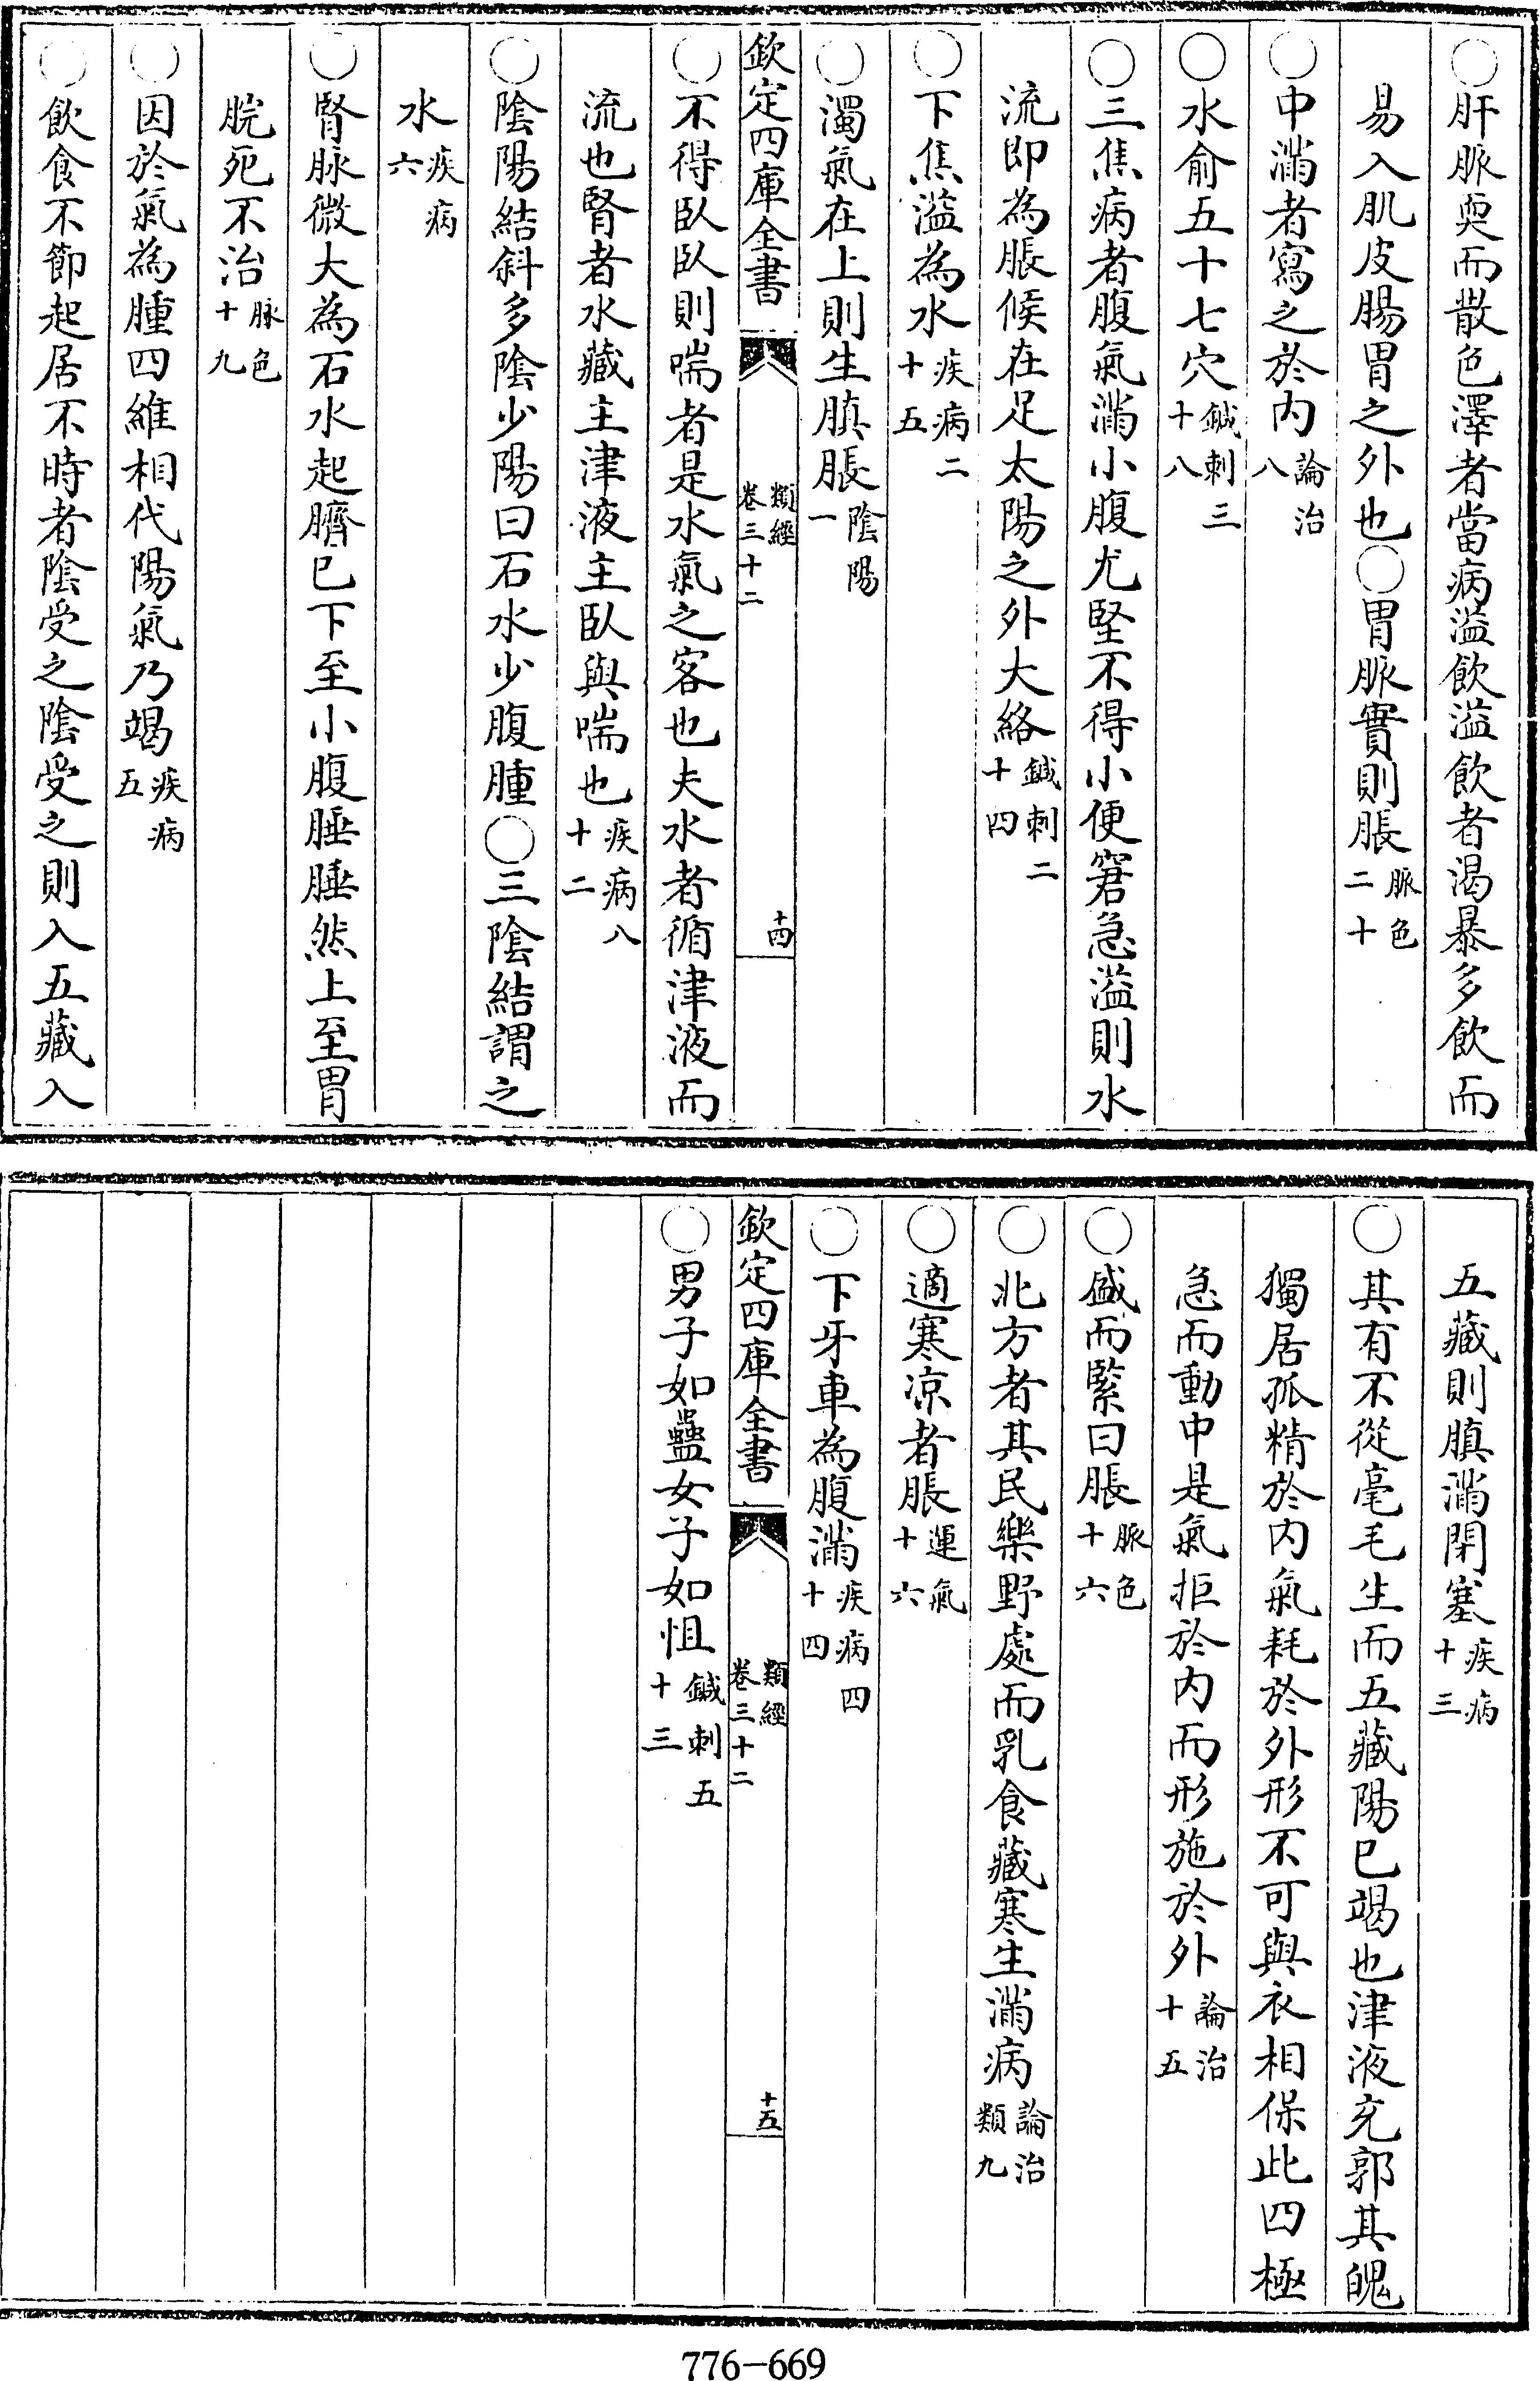 ○肝脈耎而散色澤者當病溢飲溢飲者渴暴多飲而
易入肌皮腸胃之外也○胃脈實則脹脈色二十
○中滿者寫之於內論治八
○水俞五十七穴鍼刺三十八
○三焦病者腹氣滿小腹尤堅不得小便窘急溢則水
流即為脹候在足太陽之外大絡鍼刺二十四
○下焦溢為水疾病二十五
○濁氣在上則生䐜脹陰陽一
欽定四庫全書 類經卷三十二 十四
○不得臥臥則喘者是水氣之客也夫水者循津液而
流也腎者水藏主津液主臥與喘也疾病八十二
○陰陽結斜多陰少陽曰石水少腹腫○三陰結謂之
水疾病六
○腎脉微大為石水起臍已下至小腹腄腄然上至胃
脘死不治脉色十九
○因於氣為腫四維相代陽氣乃竭疾病五
○飲食不節起居不時者陰受之陰受之則入五藏入
五藏則䐜滿閉塞疾病十三
○其有不從毫毛生而五藏陽已竭也津液充郭其魄
獨居孤精於內氣耗於外形不可與衣相保此四極
急而動中是氣拒於內而形施於外論治十五
○盛而緊曰脹脈色十六
○北方者其民樂野處而乳食藏寒生滿病論治類九
○適寒凉者脹運氣十六
○下牙車為腹滿疾病四十四
欽定四庫全書 類經卷三十二 十五
○男子如蠱女子如怚鍼刺五十三
776-669